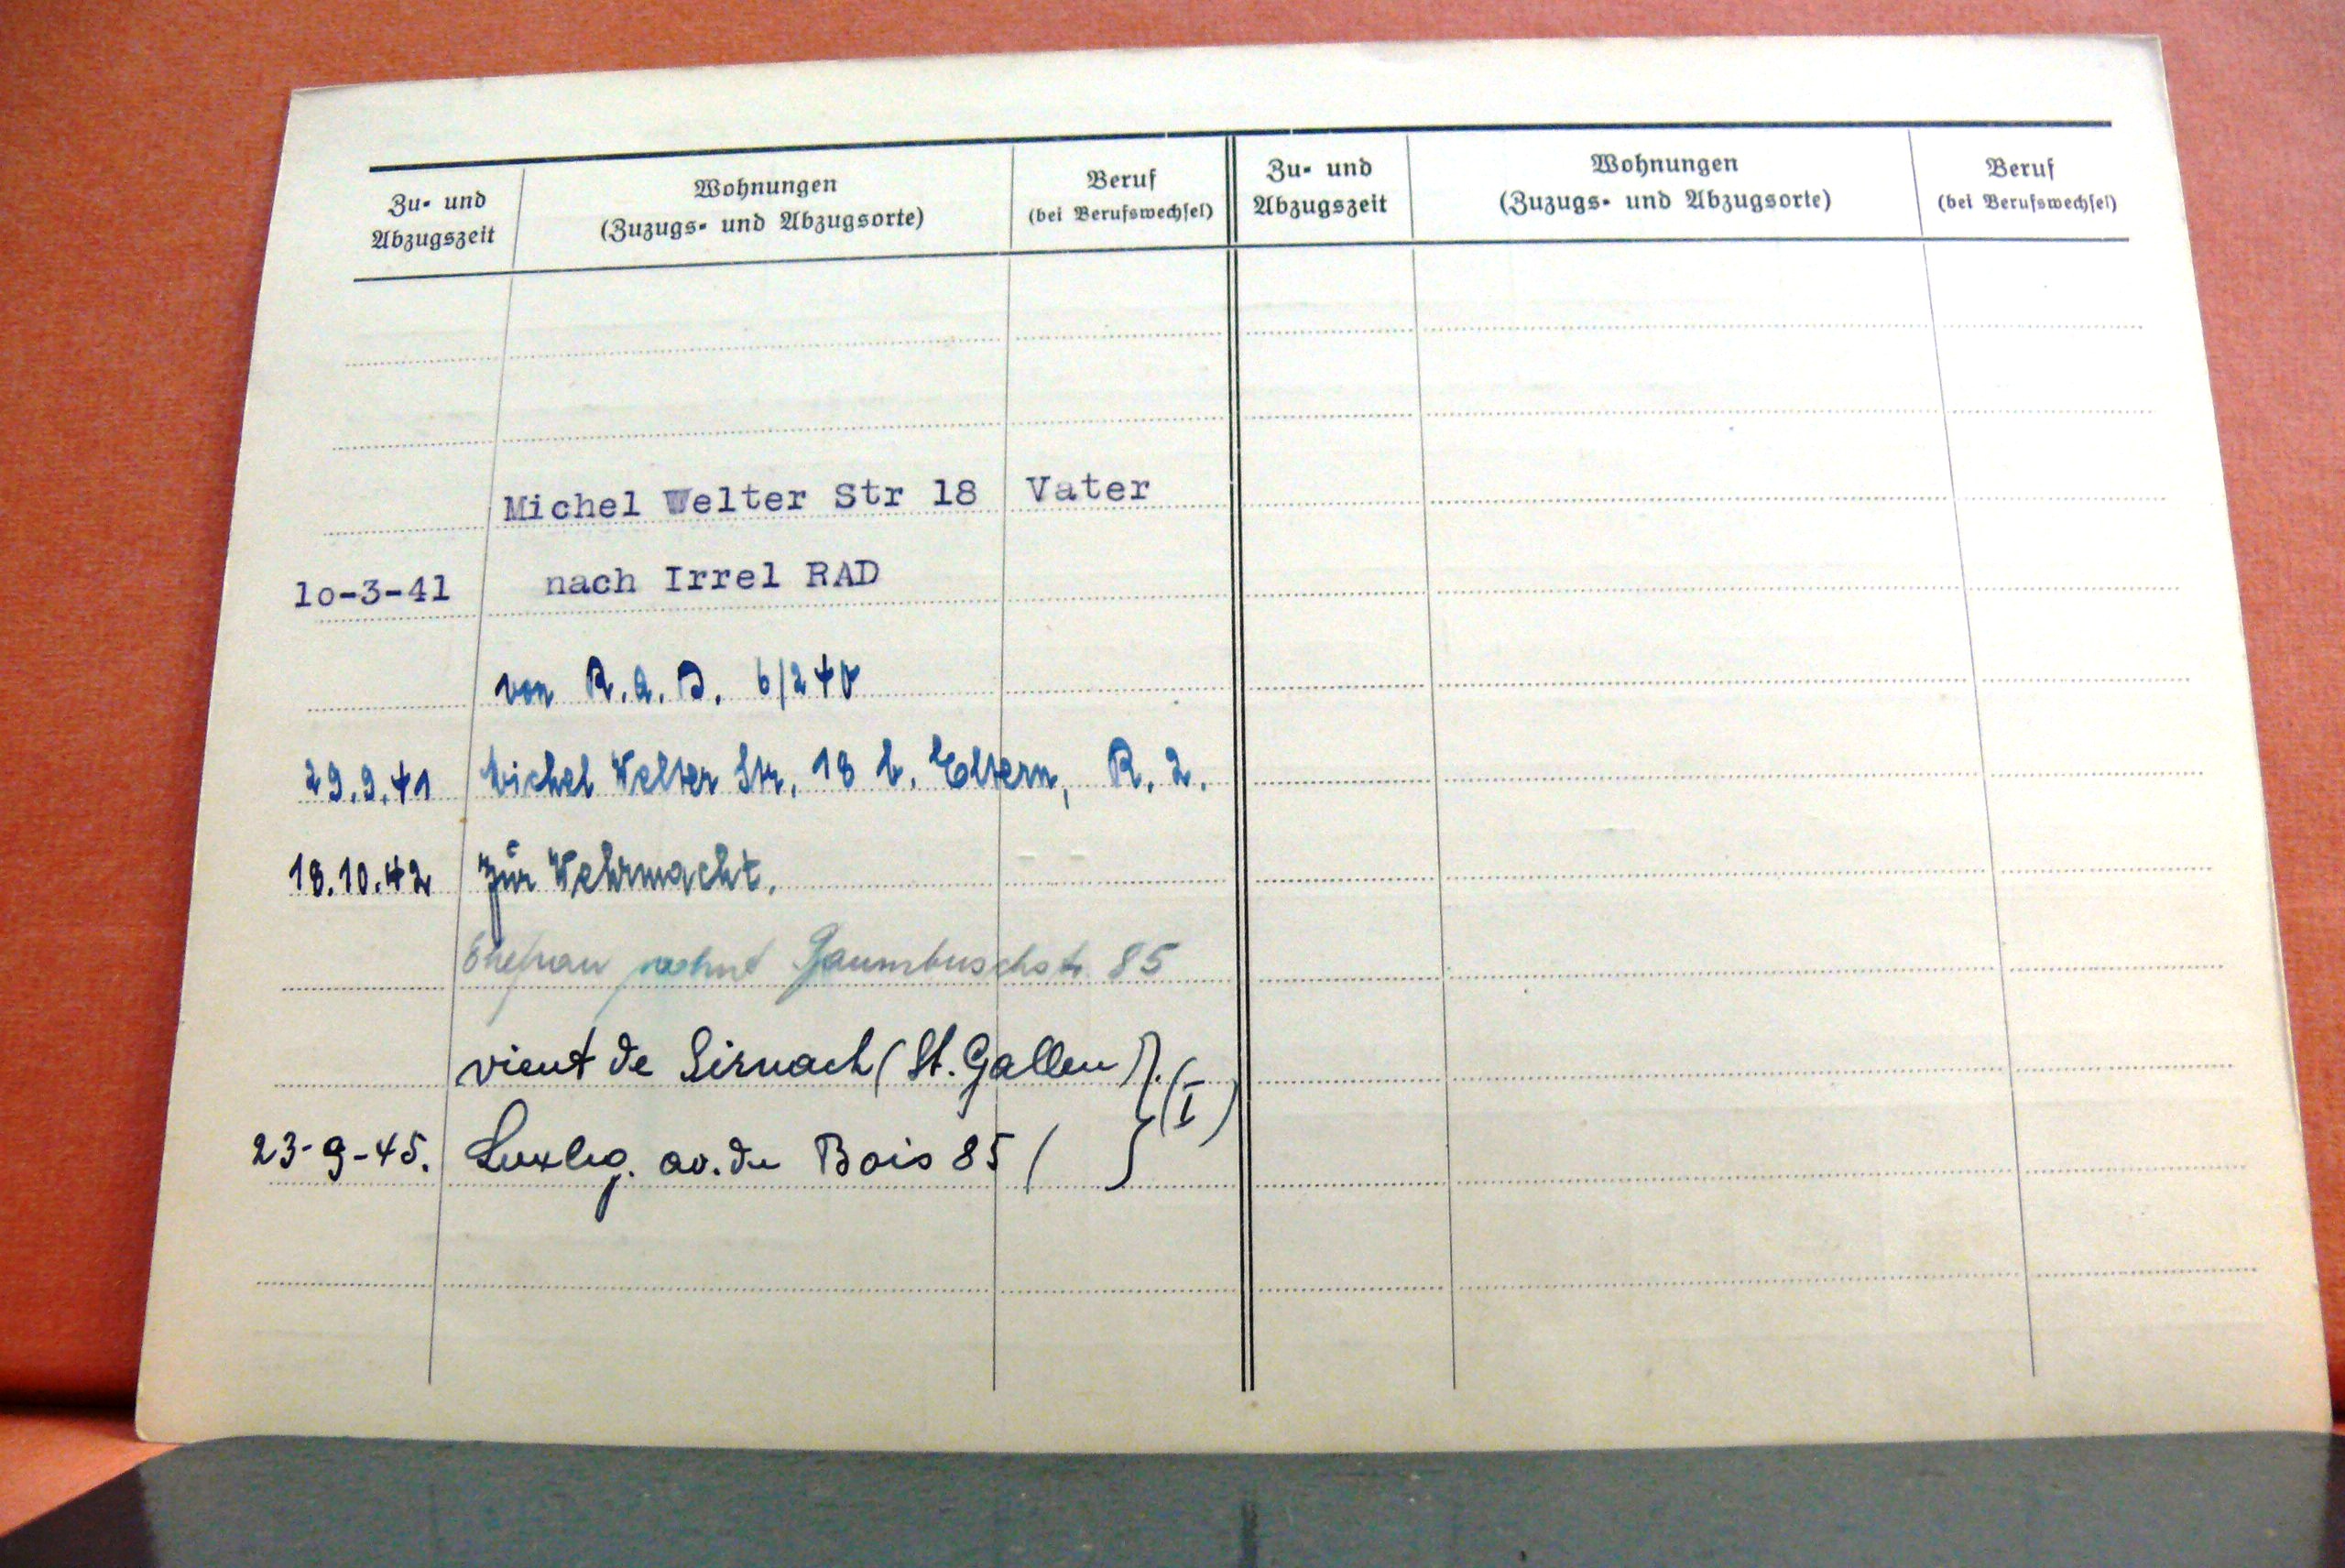 Zu- und Abzugszeit
Wohnungen
(Zuzugs- und Abzugsorte)
Beruf
(bei Berufswechsel)
Zu- und Abzugszeit
Wohnungen
(Zuzugs- und Abzugsorte)
Beruf
(bei Berufswechsel)
Michel Welter Str 18 Vater
10-3-41 nach Irrel RAD
von R.A.D. 6/240
29.9.41 Michel Welter Str. 18 b. Eltern, R. 2.
18.10.42 zur Wehrmacht.
Ehefrau wohnt 85
vient de Sirnach (St. Gallen). (I)
23-9-45. Luxbg. av. du Bois 85 ( )